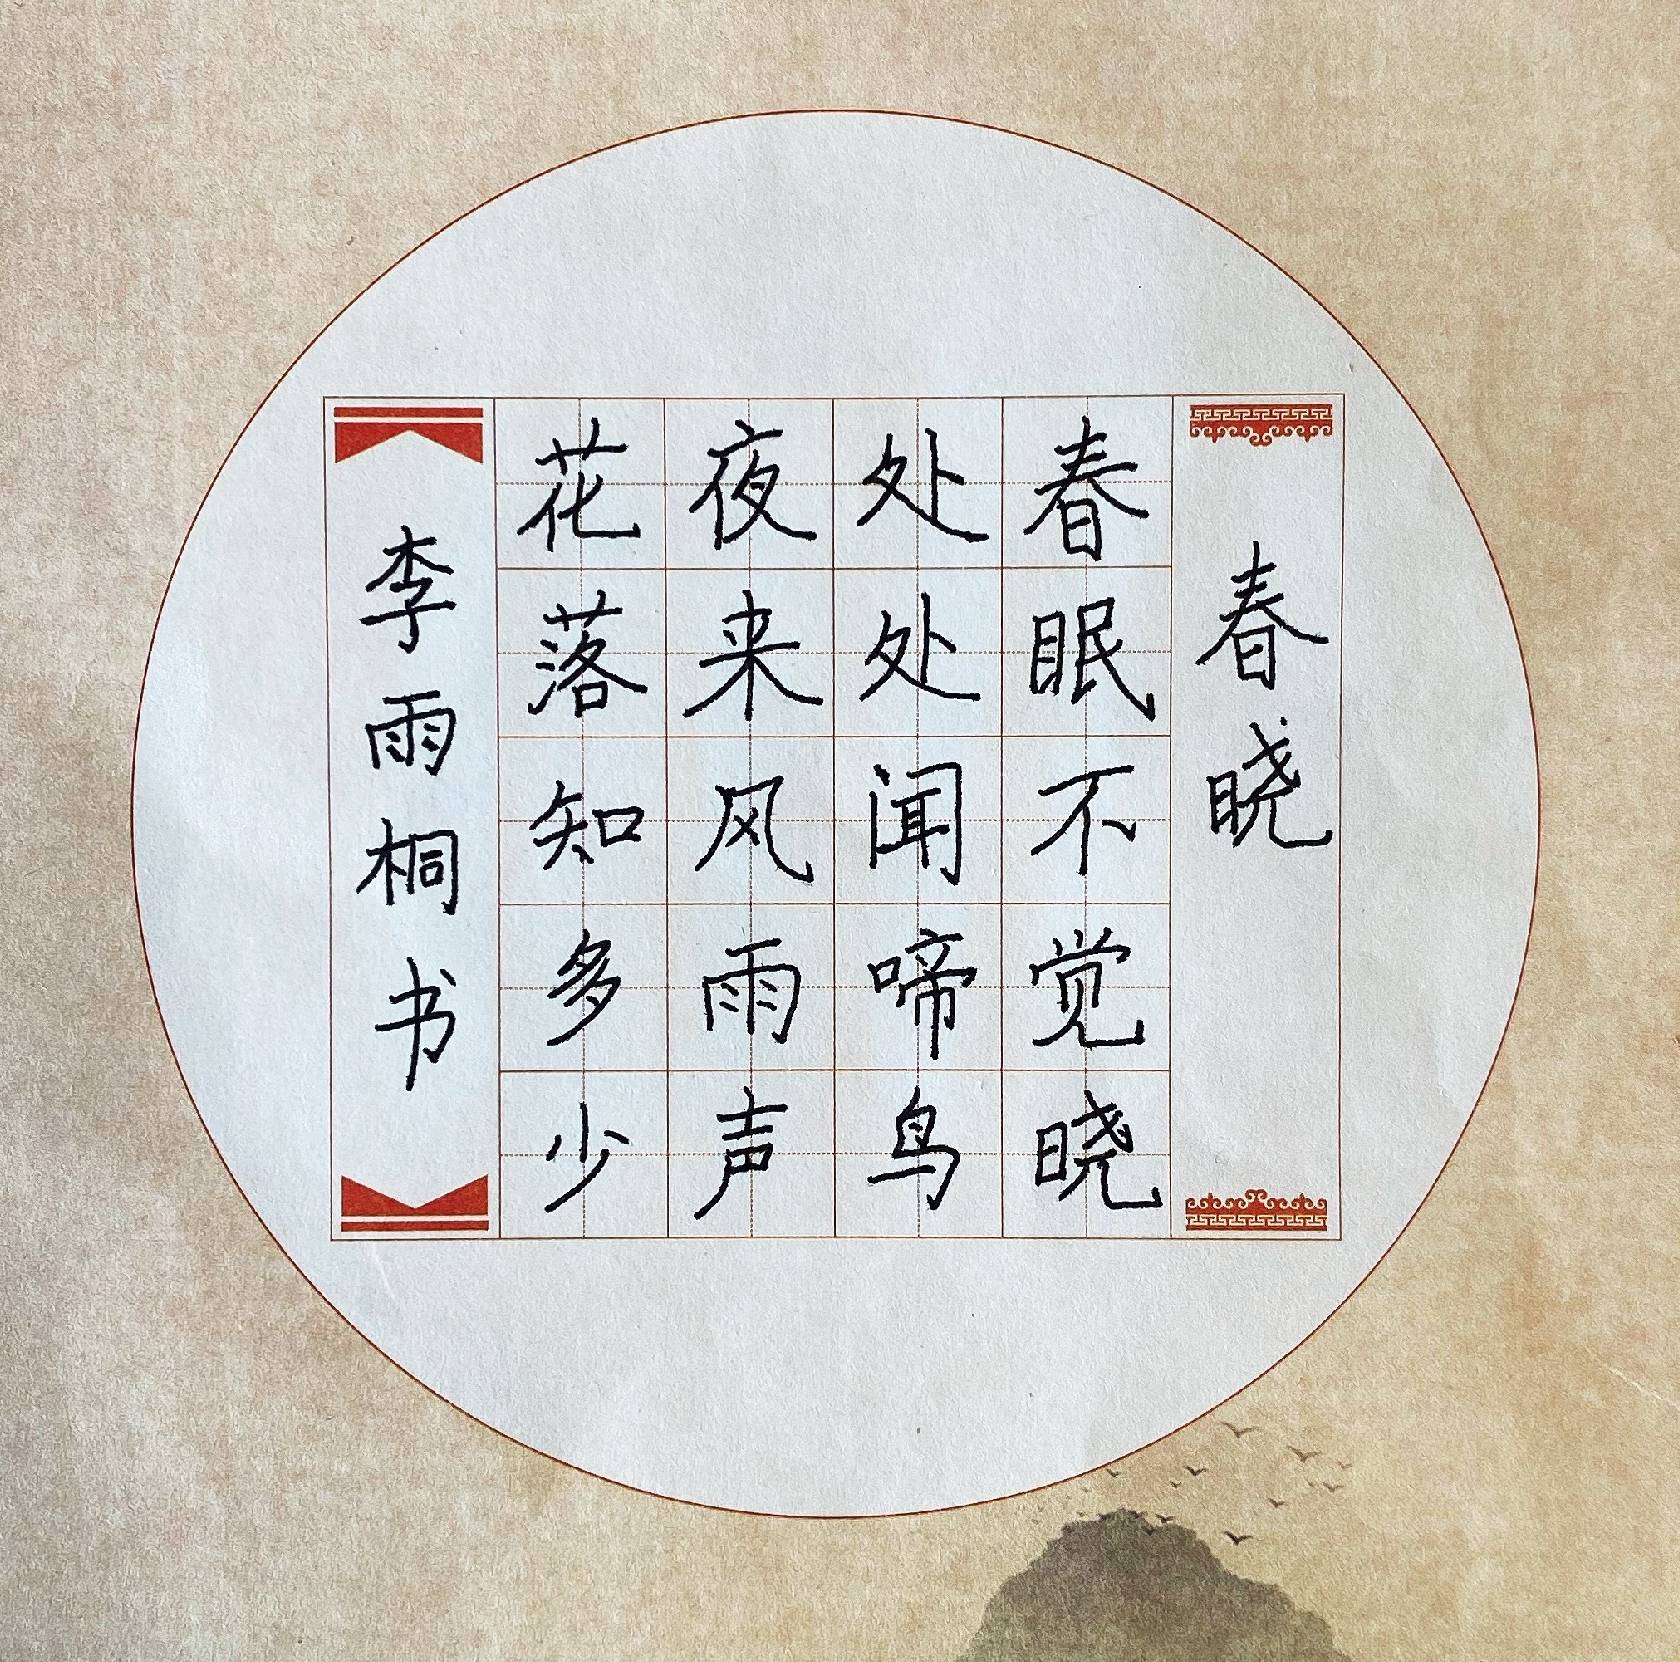 春晓
春眠不觉晓
处处闻啼鸟
夜来风雨声
花落知多少
李雨桐书